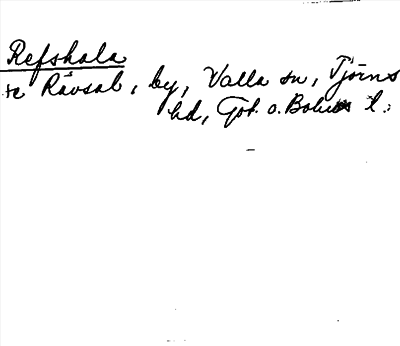 Refshala
se Rävsal, by, Valla sn, Tjörns
hd, Got. o. Bohus l.